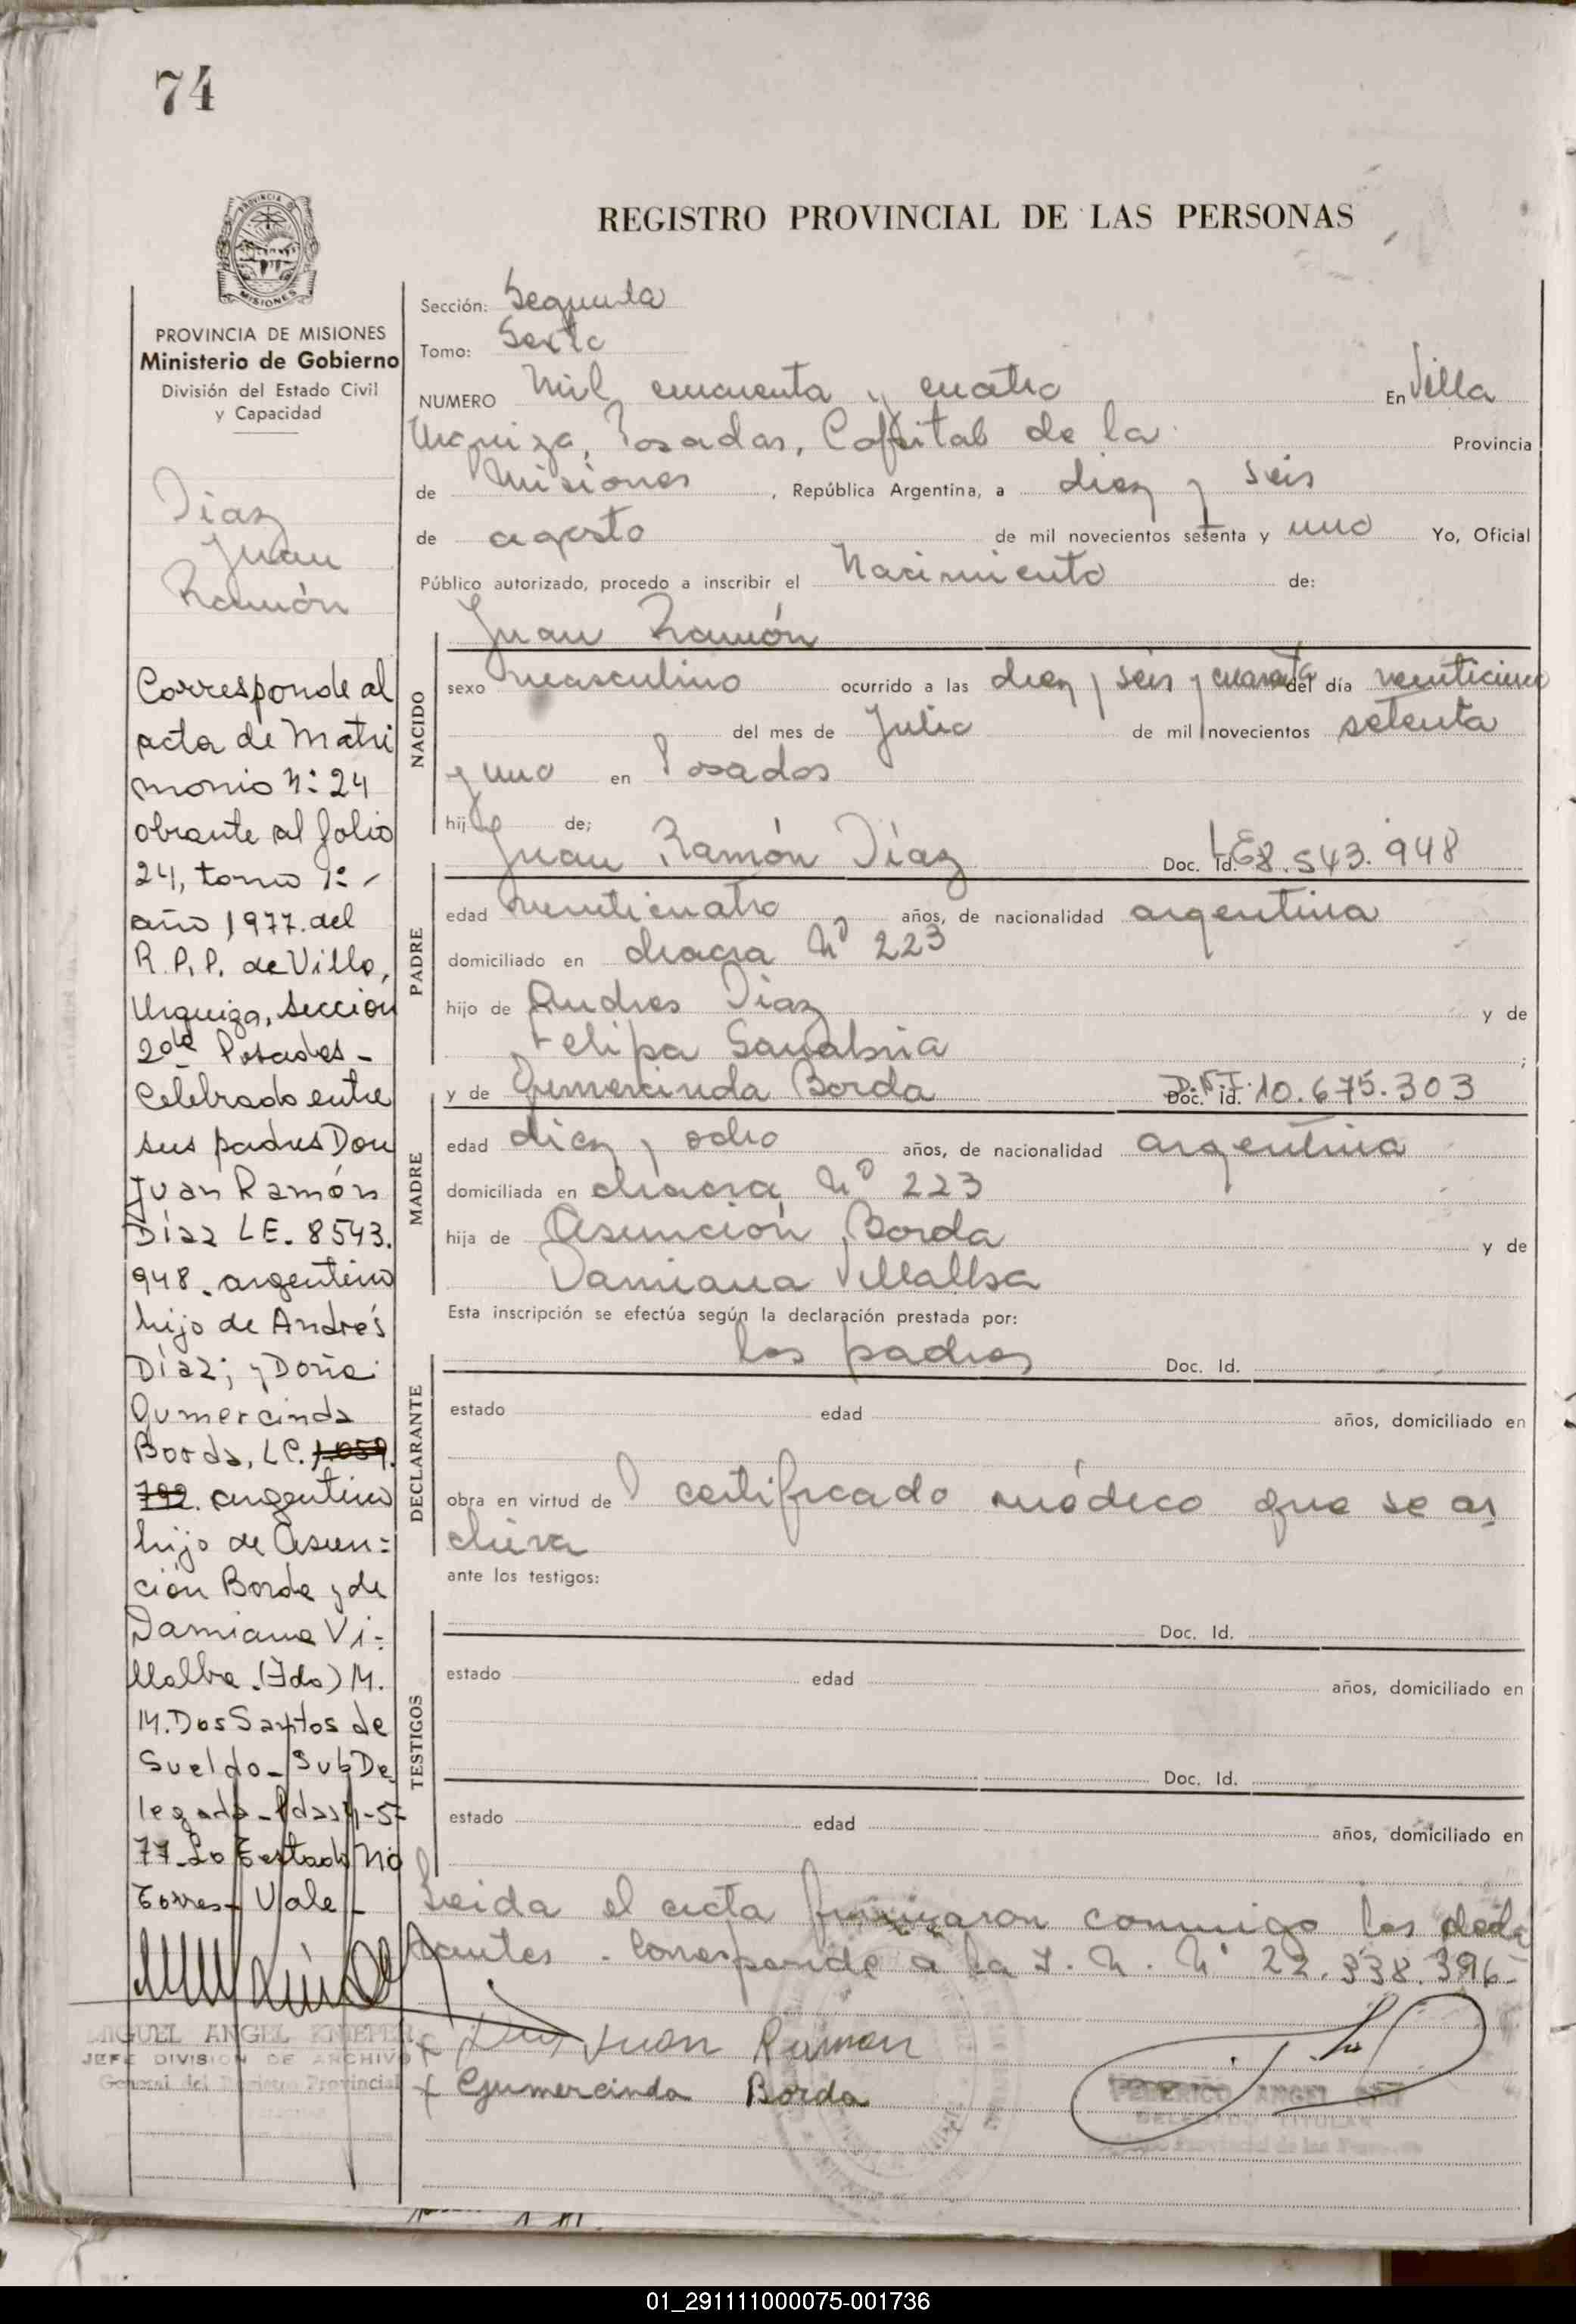 74
REGISTRO PROVINCIAL DE LAS PERSONAS
PROVINCIA DE MISIONES
Ministerio de Gobierno
División del Estado Civil
y Capacidad
Diaz
Juan
Ramón
Corresponde al
acta de Matri
monio N: 24
obrante al folio
24, tomo 1º -
año 1977. del
R.P.P. de Villa,
Urquiza, sección
2da Posadas -
Celebrado entre
sus padres Don
Juan Ramón
Díaz LE. 8543.
948. argentino
hijo de Andrés
Díaz; y Doña
Gumercinda
Borda, LC. 1.059.
792. argentino
hijo de Asun=
ción Borda y de
Damiana Vi=
llalba. (Fdo) M.
M. Dos Santos de
Sueldo - Sub De
legada - Pdas 4-5-
77 - Lo Testado No
Corre - Vale -
MIGUEL ANGEL KNIEPER
JEFE DIVISION DE ARCHIVO
General del Registro Provincial
Sección: Segunda
Tomo: Sexto
NUMERO Mil cincuenta y cuatro En Villa
Urquiza, Posadas, Capital de la Provincia
de Misiones, República Argentina, a diez y seis
de agosto de mil novecientos setenta y uno Yo, Oficial
Público autorizado, procedo a inscribir el Nacimiento de:
NACIDO
Juan Ramón
sexo masculino ocurrido a las diez y seis y cuarenta del día veinticinco
del mes de Julio de mil novecientos setenta
y uno en Posadas
hijo de;
PADRE
Juan Ramón Díaz Doc. Id. LE 8.543.948
edad veinticuatro años, de nacionalidad argentina
domiciliado en chacra Nº 223
hijo de Andres Diaz y de
Felipa Sanabria ;
MADRE
y de Gumercinda Borda Doc. Id. D.N.I. 10.675.303
edad diez y ocho años, de nacionalidad argentina
domiciliada en chacra Nº 223
hija de Asunción Borda y de
Damiana Villalba
Esta inscripción se efectúa según la declaración prestada por:
DECLARANTE
los padres Doc. Id.
estado edad años, domiciliado en
obra en virtud de l certificado médico que se ar
chiva
ante los testigos:
TESTIGOS
Doc. Id.
estado edad años, domiciliado en
Doc. Id.
estado edad años, domiciliado en
Leida el acta firmaron conmigo los decla
rantes. Corresponde a la I. N. Nº 22.338.396-
x Juan Ramon
x Gumercinda Borda
FEDERICO ANGEL
DELEGADO TITULAR
Registro Provincial de las Personas
01_291111000075-001736